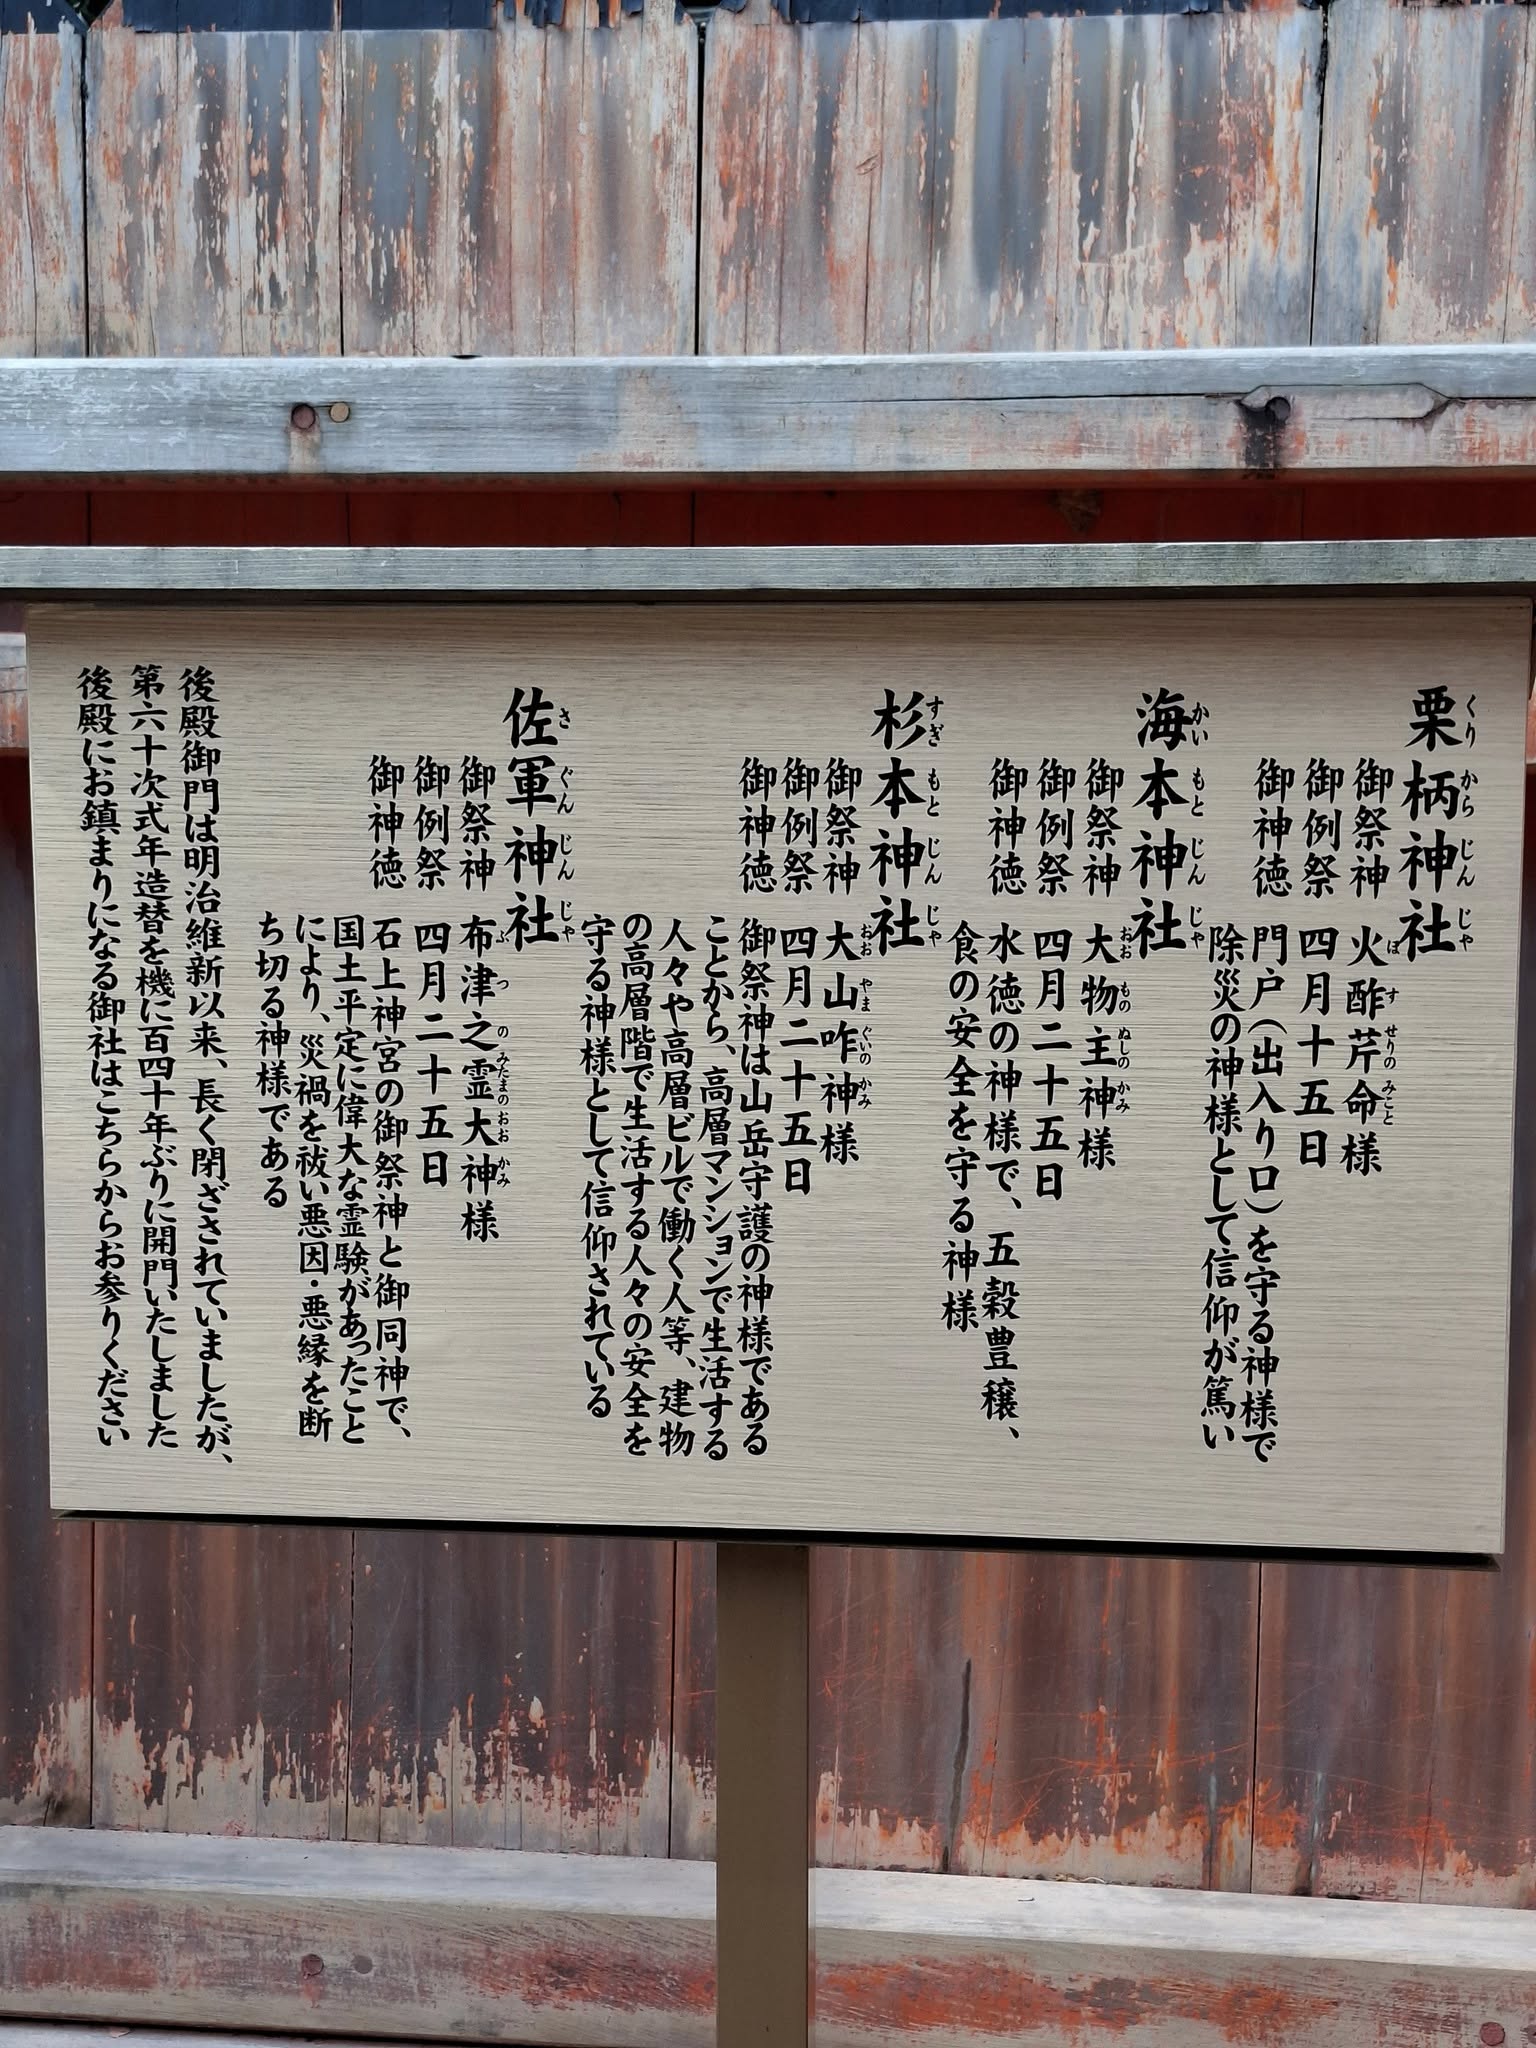 栗柄神社
くりからじんじゃ
御祭神 火酢芹命様
ほすせりのみこと
御例祭 四月十五日
御神徳 門戸(出入り口)を守る神様で
除災の神様として信仰が篤い
海本神社
かいもとじんじゃ
御祭神 大物主神様
おおものぬしのかみ
御例祭 四月二十五日
御神徳 水徳の神様で、五穀豊穣、
食の安全を守る神様
杉本神社
すぎもとじんじゃ
御祭神 大山咋神様
おおやまぐいのかみ
御例祭 四月二十五日
御神徳 御祭神は山岳守護の神様である
ことから、高層マンションで生活する
人々や高層ビルで働く人等、建物
の高層階で生活する人々の安全を
守る神様として信仰されている
佐軍神社
さぐんじんじゃ
御祭神 布津之霊大神様
ふつのみたまのおおかみ
御例祭 四月二十五日
御神徳 石上神宮の御祭神と御同神で、
国土平定に偉大な霊験があったこと
により、災禍を祓い悪因・悪縁を断
ち切る神様である
後殿御門は明治維新以来、長く閉ざされていましたが、
第六十次式年造替を機に百四十年ぶりに開門いたしました
後殿にお鎮まりになる御社はこちらからお参りください